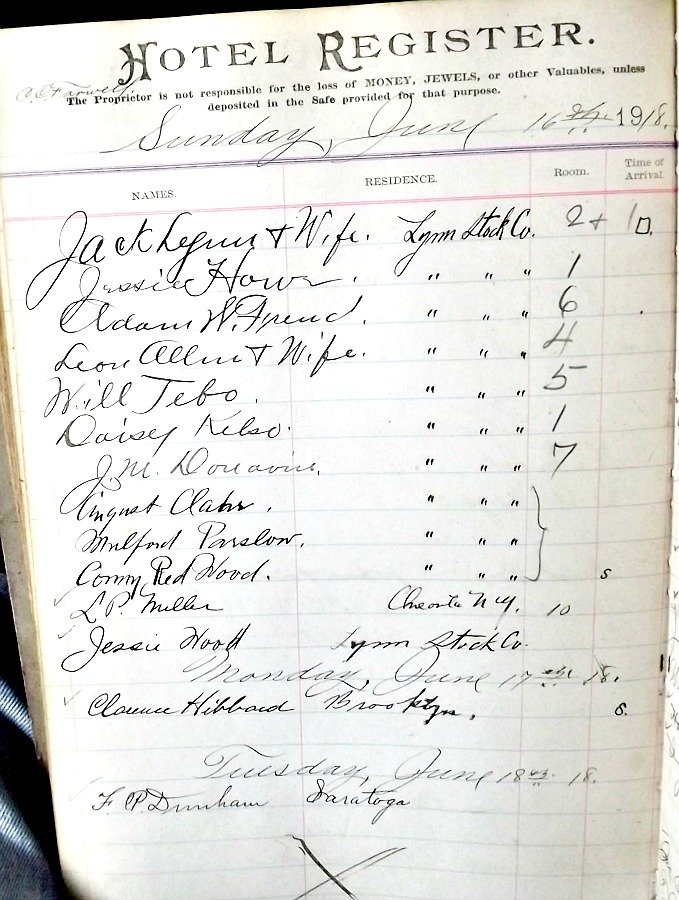 HOTEL REGISTER.
The Proprietor is not responsible for the loss of MONEY, JEWELS, or other Valuables, unless
deposited in the Safe provided for that purpose.
Sunday, June 16th 1918.
NAMES. RESIDENCE. Room. Time of Arrival.
Jack Lynn & Wife. Lynn Stock Co. 2 +
Jessie Howe. " " " 1
Adam W. Friend. " " " 6
Leon Allen & Wife. " " " 4
Will Tebo. " " " 5
Daisey Kelso. " " " 1
J. M. Donavin. " " " 7
August Clahr. " " "
Mulford Parslow. " " "
Conny Red Wood. " " " s
L. P. Miller N.Y. 10
Jessie Hood Lynn Stock Co.
Monday, June 17th 18.
Clarence Hibbard Brooklyn. s.
Tuesday, June 18th 18.
F. P. Dunham Saratoga